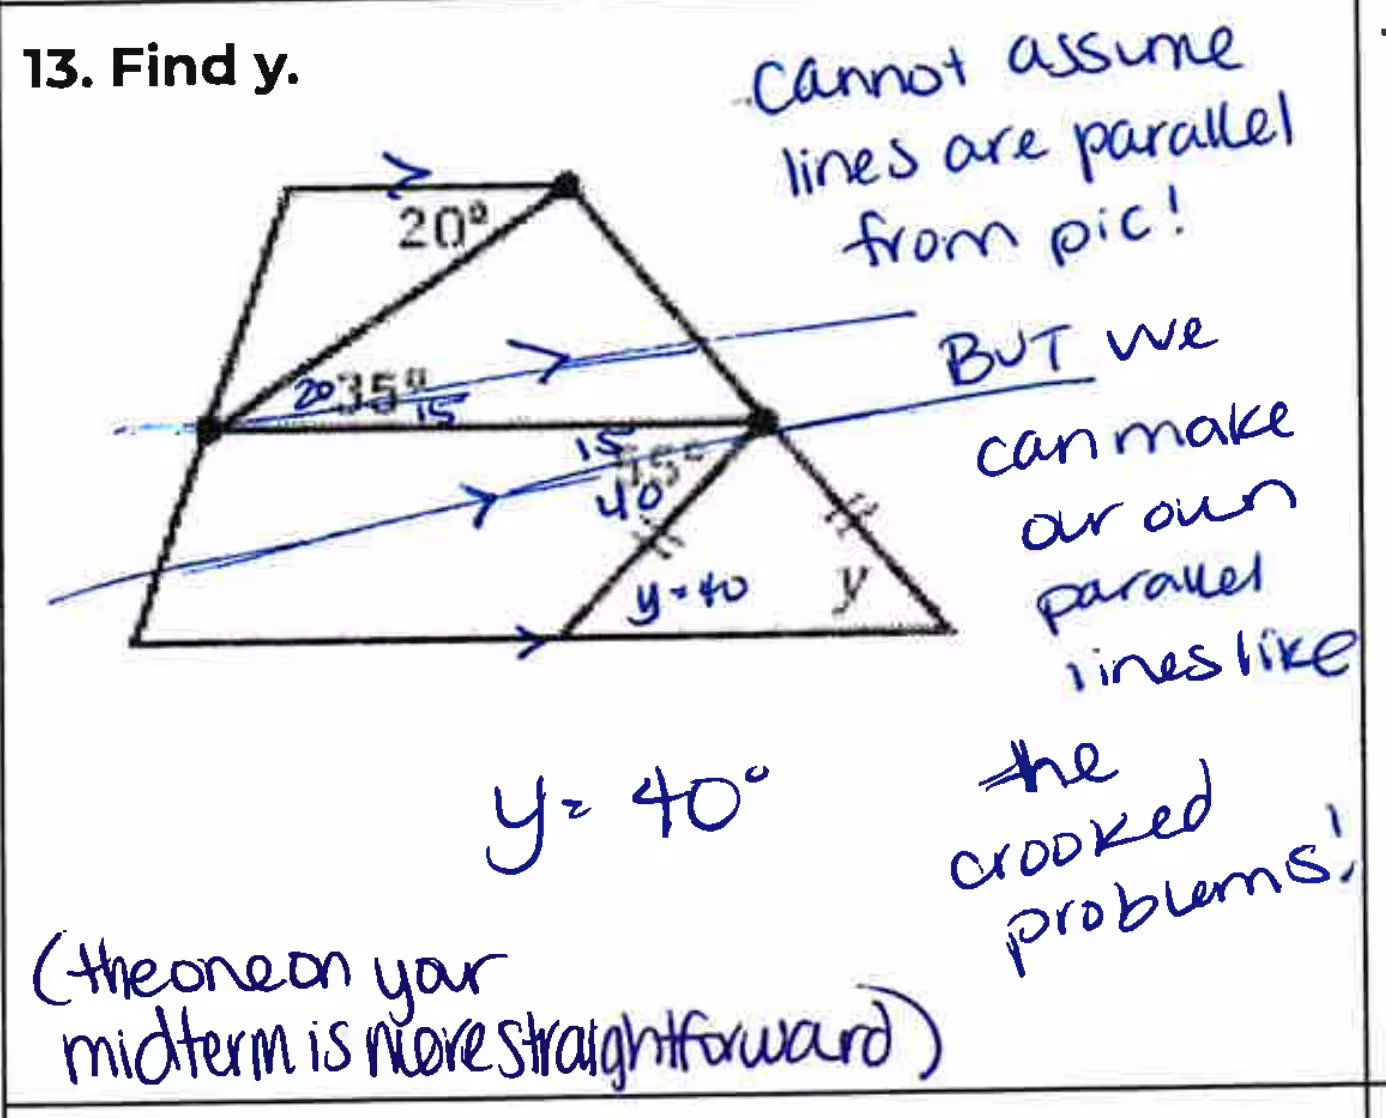 13. Find y.
Cannot assume
lines are parallel
from pic!
20°
BUT we
20 35° 15
can make
15 55°
our own
40
parallel
y=40 y
lines like
the
y= 40°
crooked
problems!
(the one on your
midterm is more straightforward)